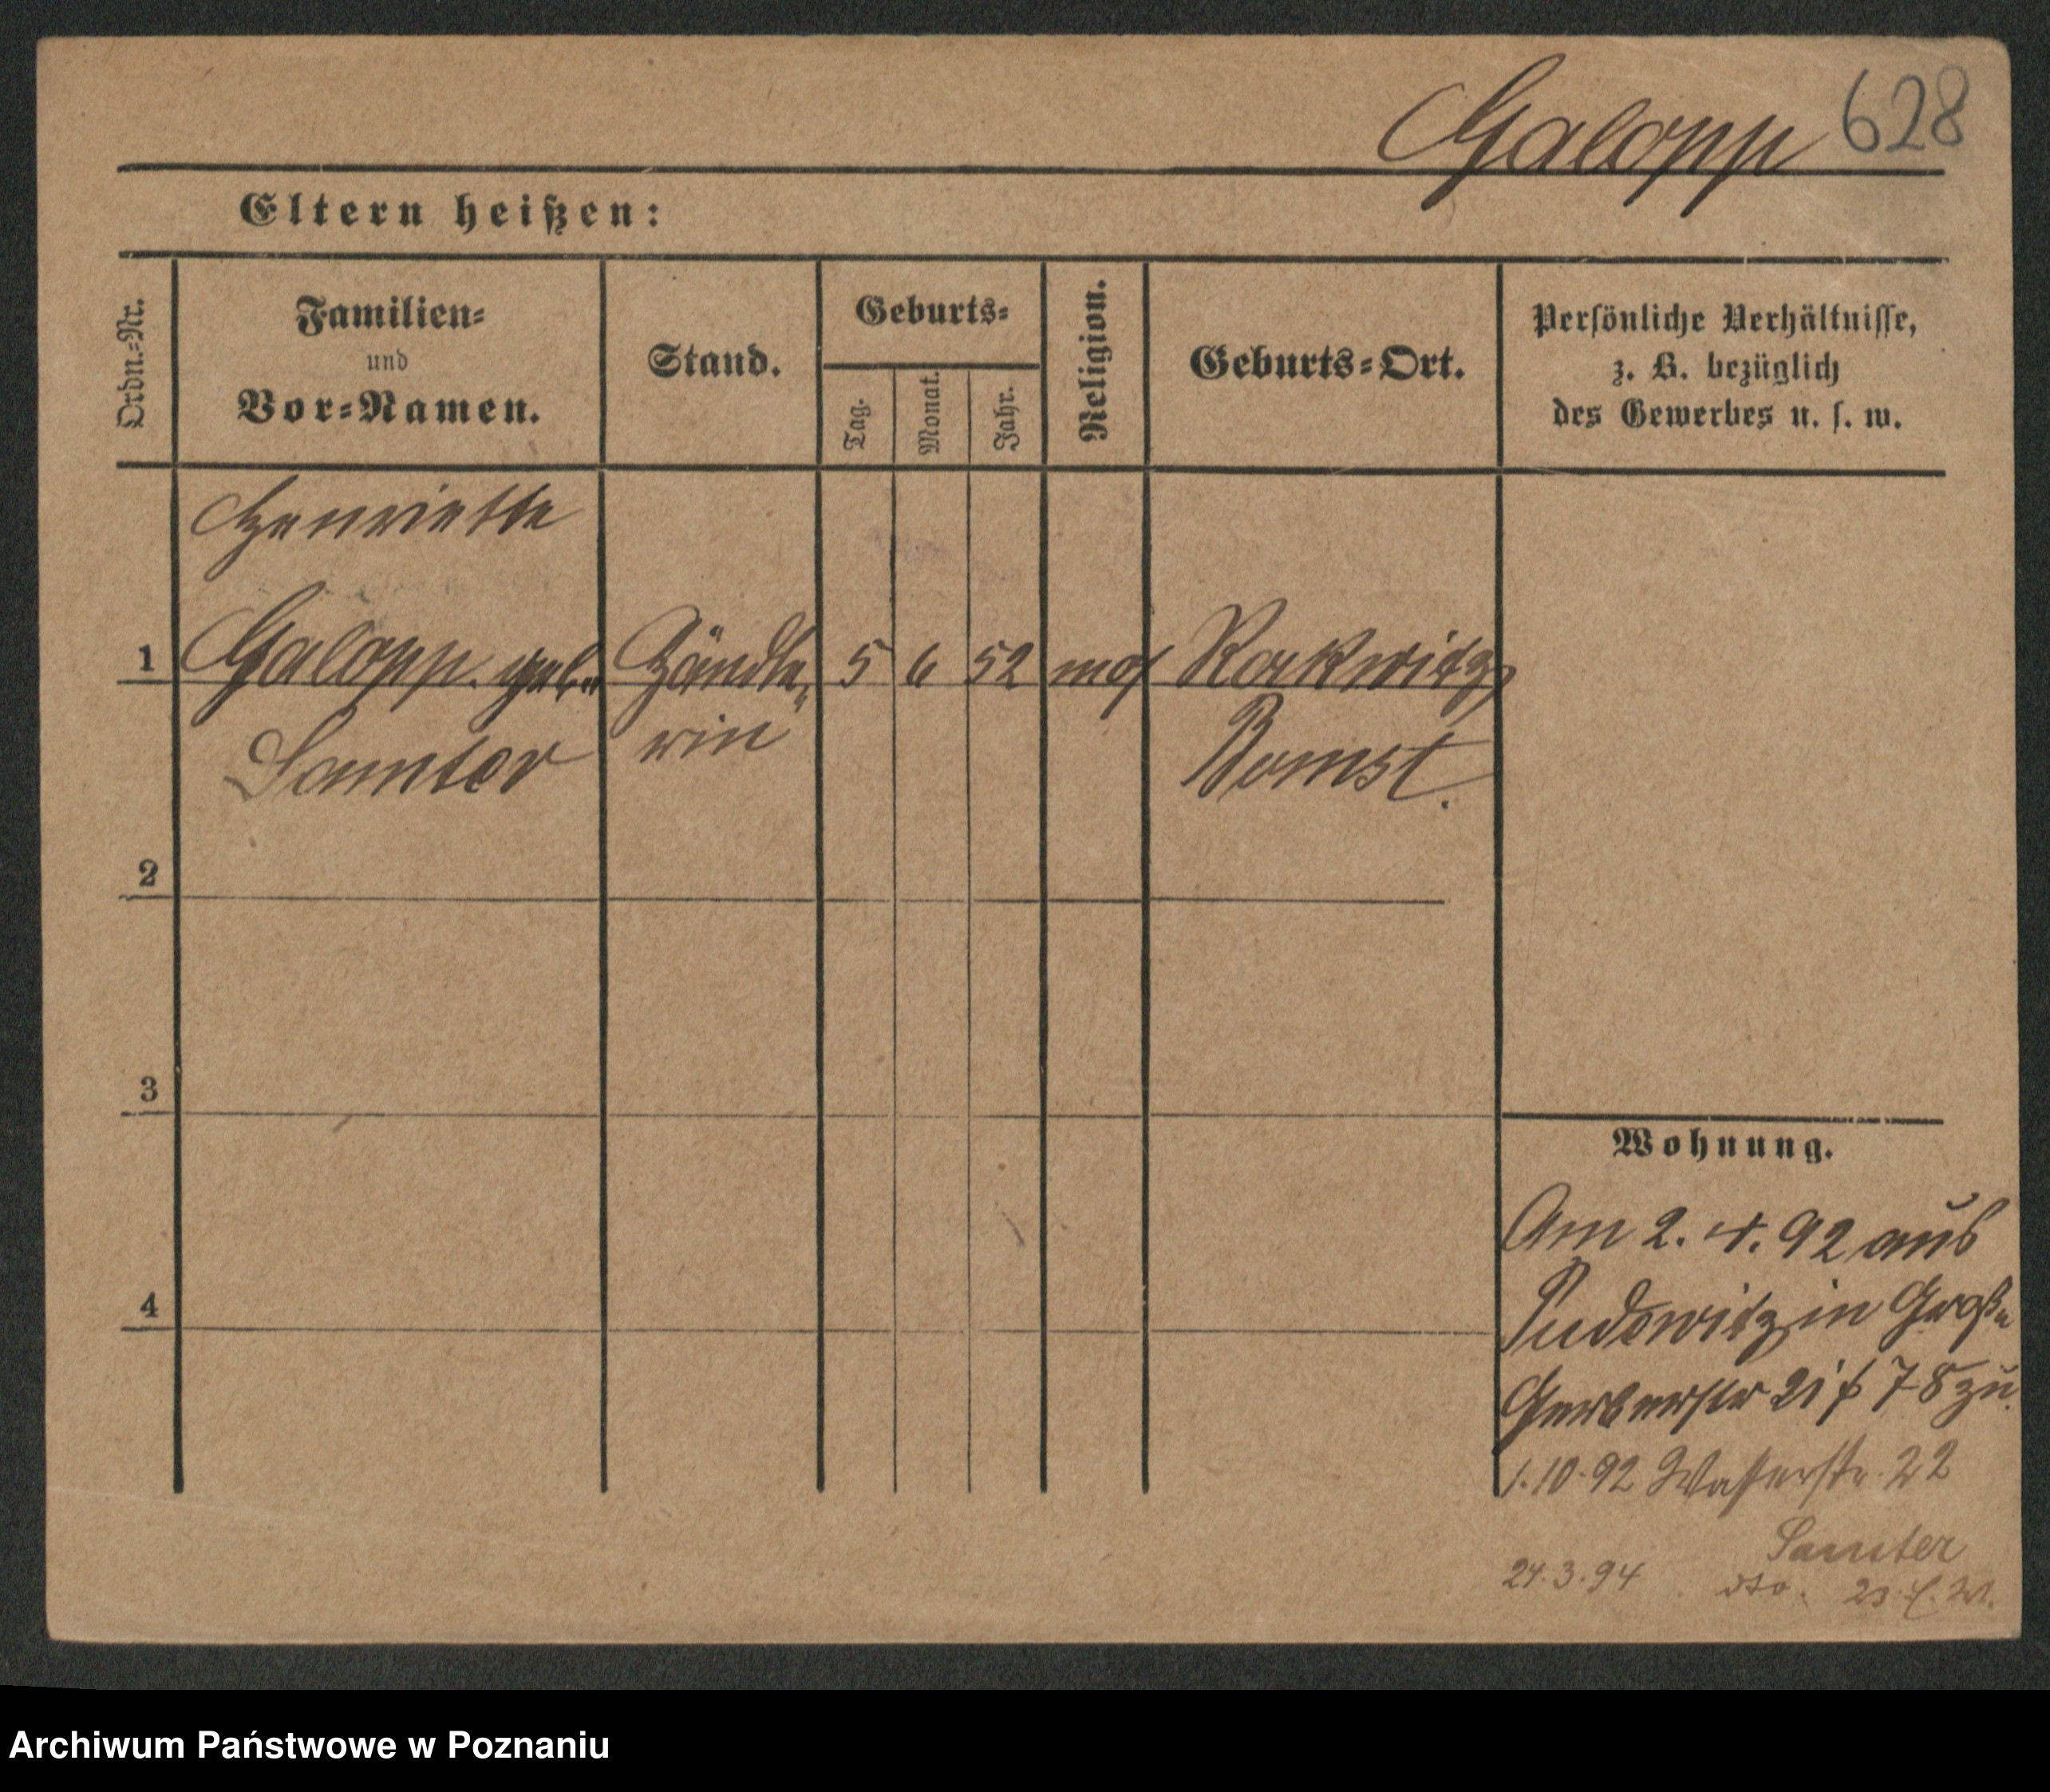 Galopp 628
Eltern heißen:
Ordn.-Nr.
Familien-
und
Vor-Namen.
Stand.
Geburts-
Tag.
Monat.
Jahr.
Religion.
Geburts-Ort.
Persönliche Verhältnisse,
z. B. bezüglich
des Gewerbes u. s. w.
Henriette
1 Galopp geb. Händle- 5 6 52 mos Rakwitz,
Samter rin Bomst.
2
3
4
Wohnung.
Am 2. 4. 92 aus
Pudewitz in Große
Gerberstr 7-8 zu.
1.10.92 Wasserstr. 22
Samter
24.3.94 dto.
Archiwum Państwowe w Poznaniu